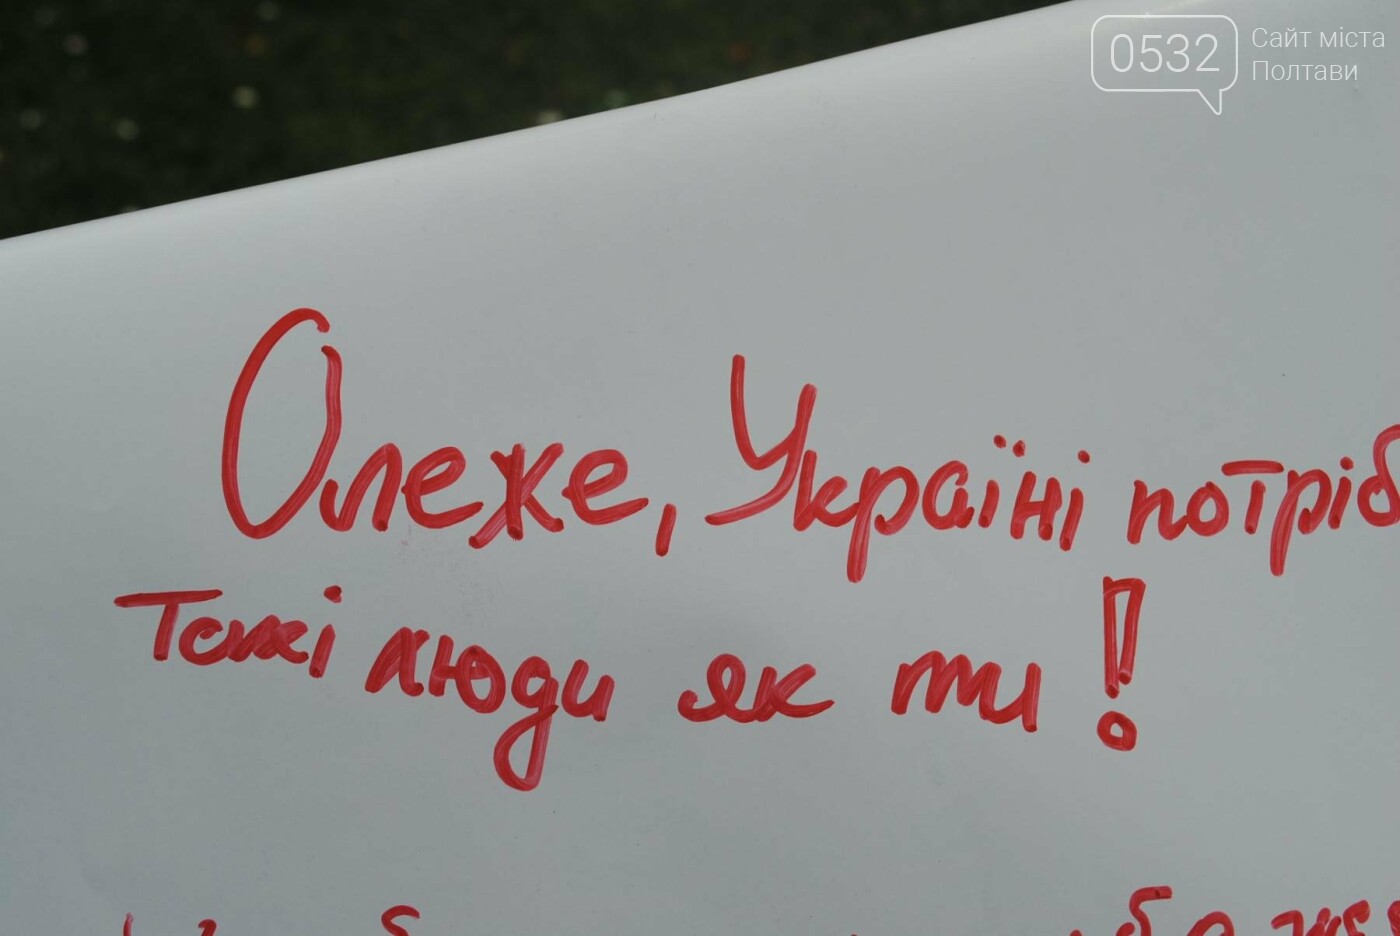 0532 Сайт міста
Полтави
Олеже, Україні потріб
Такі люди як ти!